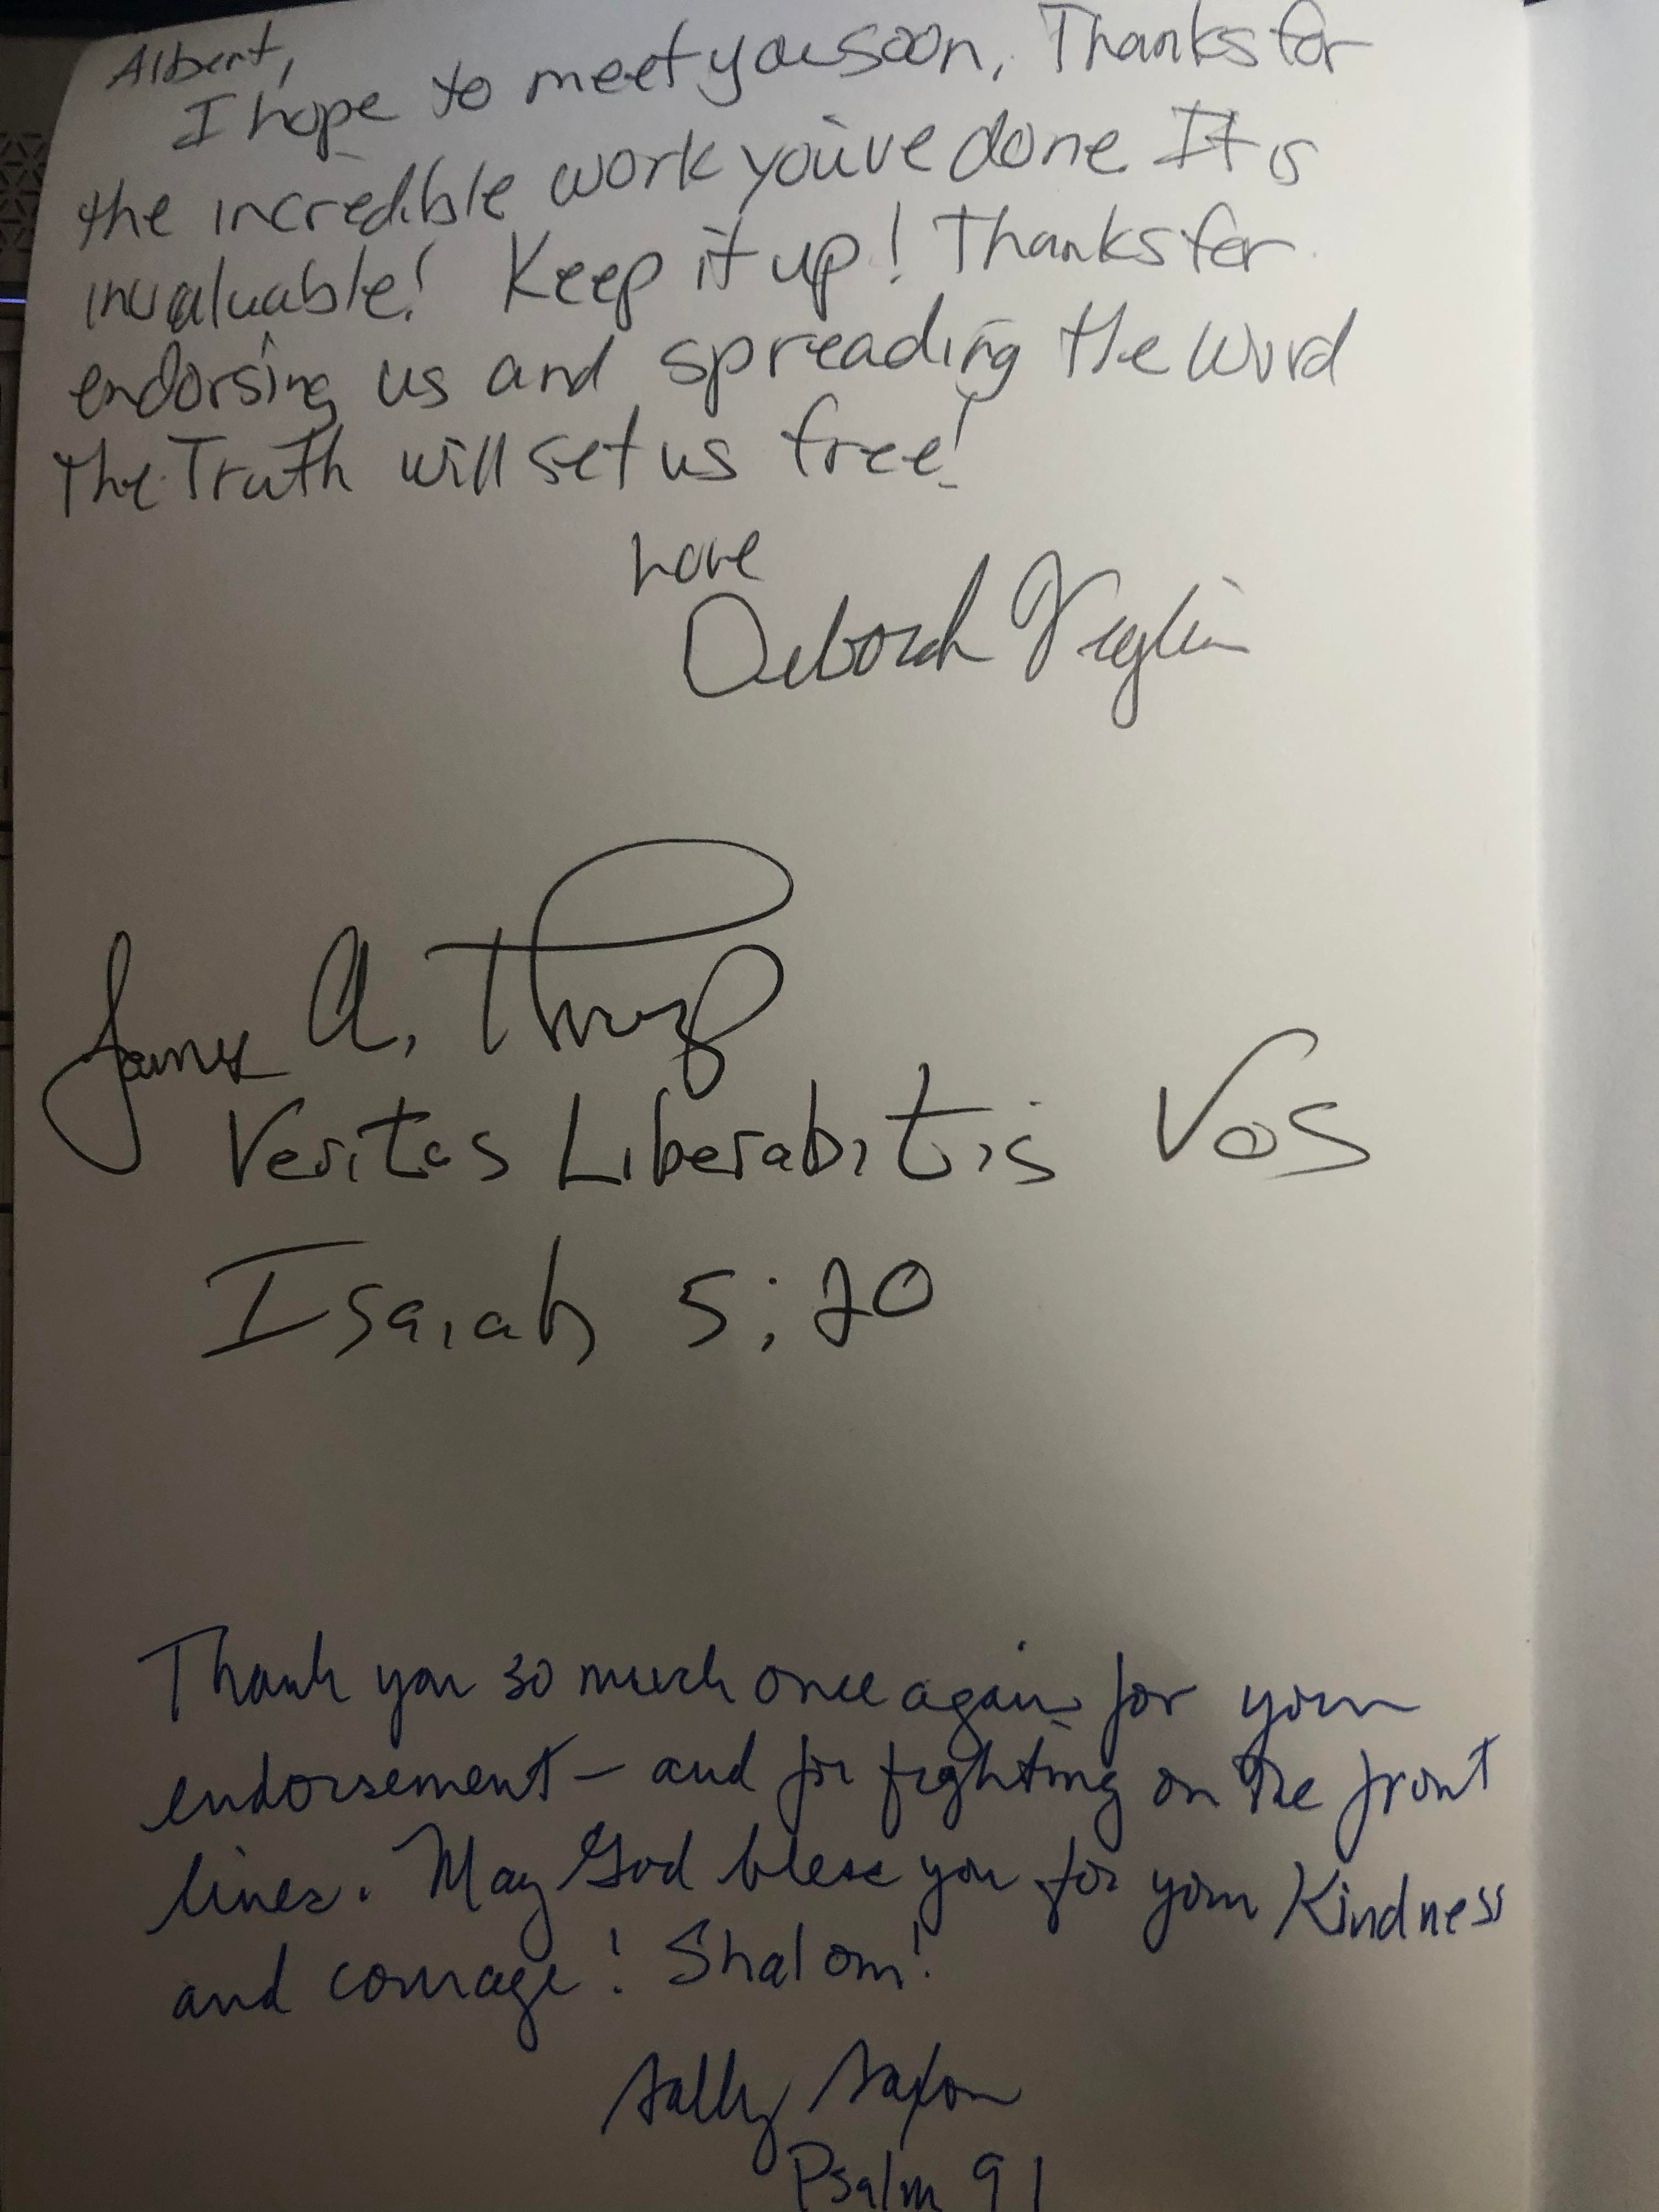 Albert,
I hope to meet you soon. Thanks for
the incredible work you've done. It is
invaluable! Keep it up! Thanks for
endorsing us and spreading the Word
The Truth will set us free!
Love
Deborah Viglione
James A. Thorp
Veritas Liberabitis Vos
Isaiah 5:20
Thank you so much once again for your
endorsement – and for fighting on the front
lines. May God bless you for your Kindness
and courage! Shalom!
Sally Saxon
Psalm 91